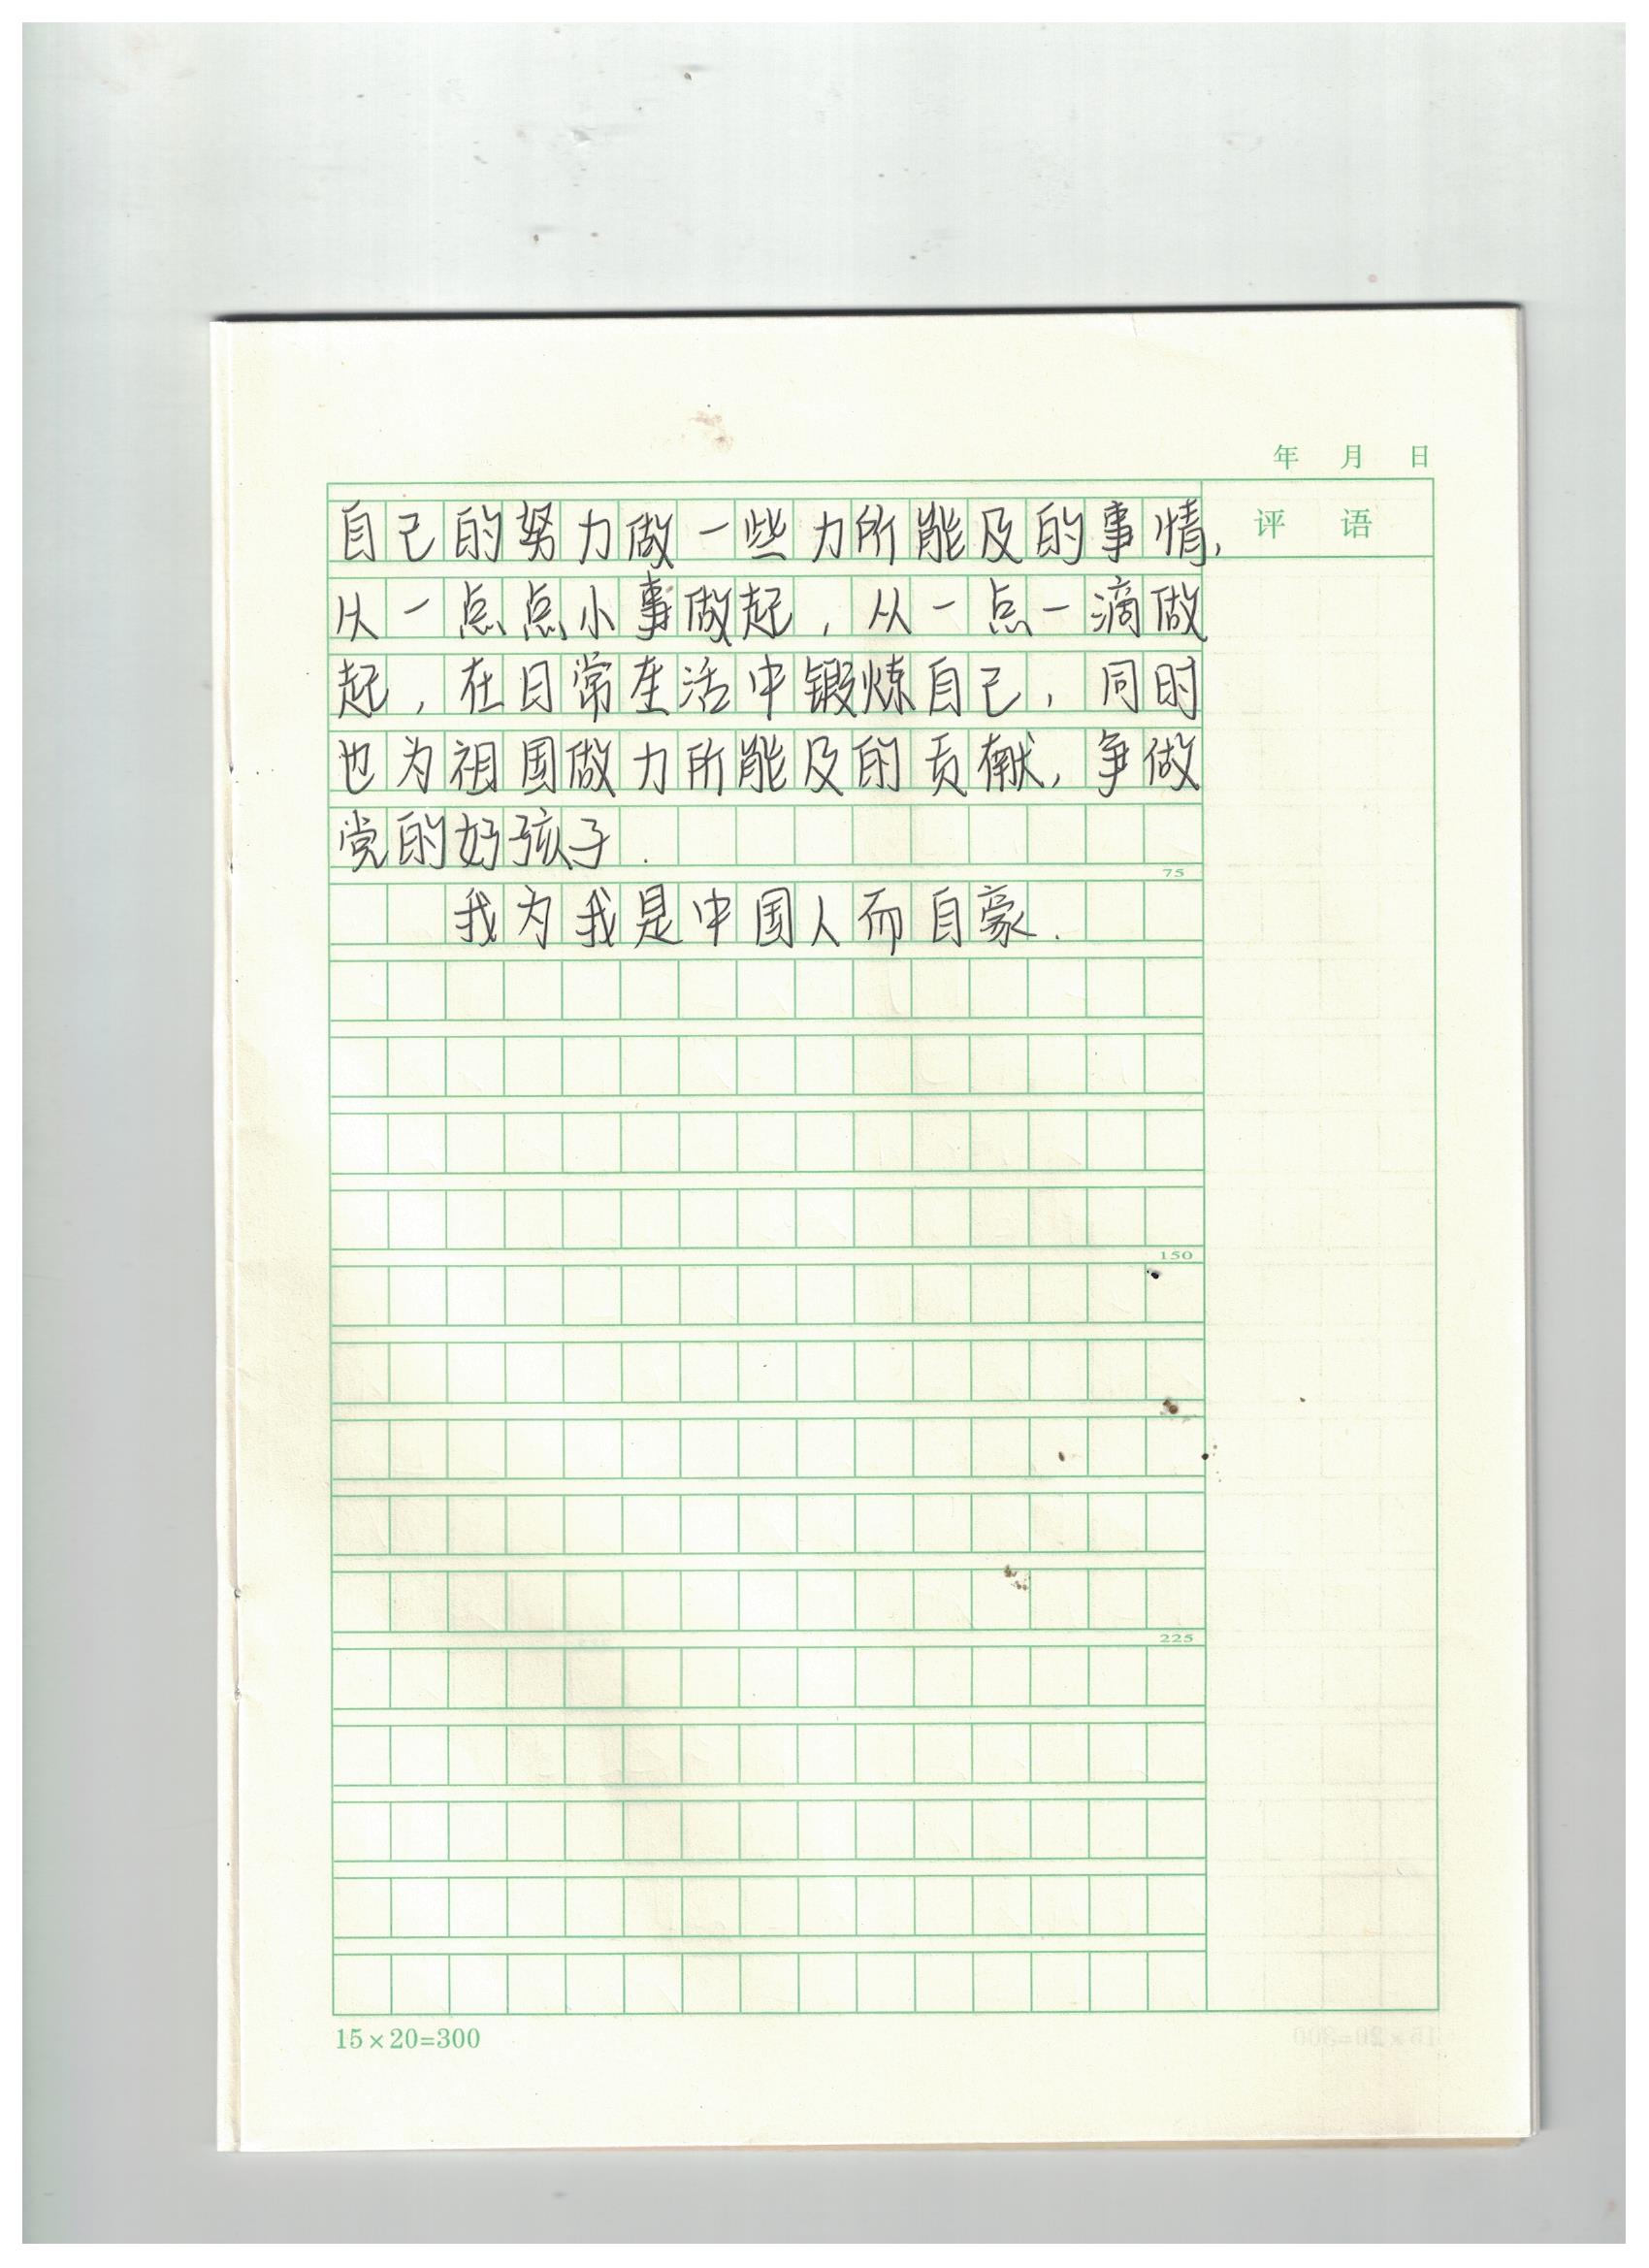 年 月 日
自己的努力做一些力所能及的事情,
评 语
从一点点小事做起,从一点一滴做
起,在日常生活中锻炼自己,同时
也为祖国做力所能及的贡献,争做
党的好孩子.
75
我为我是中国人而自豪.
150
225
15×20=300